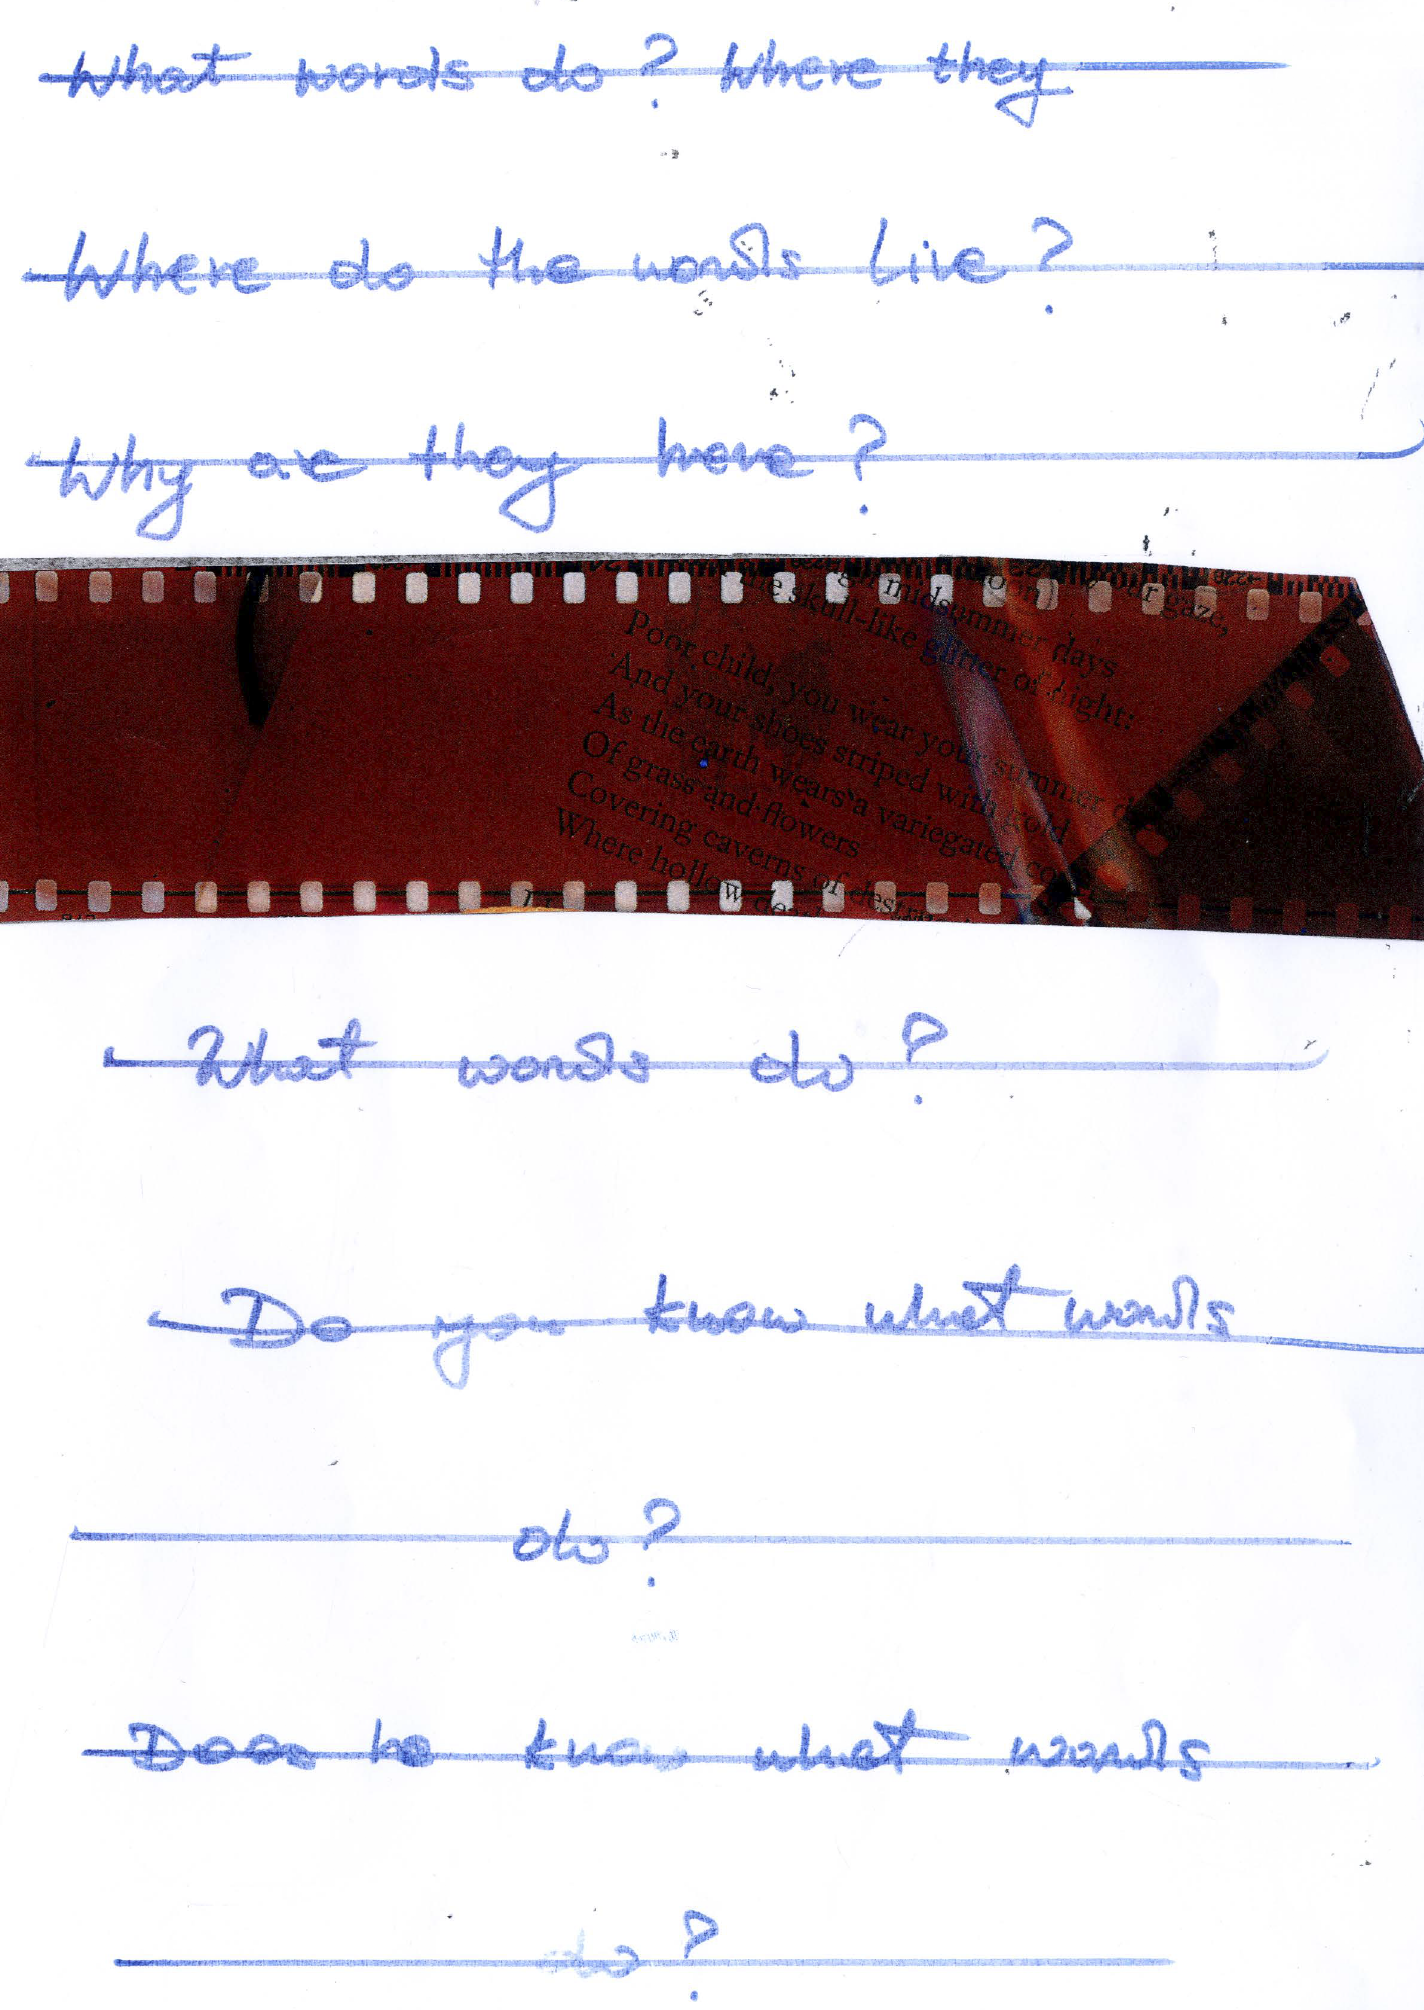 What words do? Where they
Where do the words live?
Why are they here?
our gaze,
midsummer days
skull-like glitter of light:
Poor child, you wear your summer
And your shoes striped with gold
As the earth wears a variegated
Of grass and flowers
Covering caverns of
Where hollow
What words do?
Do you know what words
do?
Does he know what words
do?